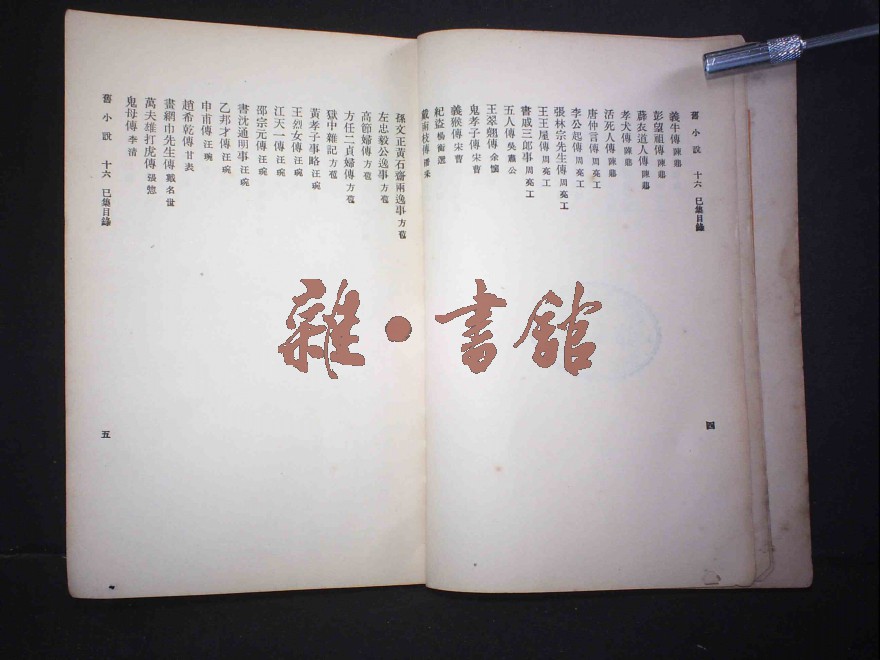 舊小說 十六 已集目錄
義牛傳 陳鼎
彭望祖傳 陳鼎
薜衣道人傳 陳鼎
孝犬傳 陳鼎
活死人傳 陳鼎
唐仲言傳 周亮工
李公起傳 周亮工
張林宗先生傳 周亮工
王王屋傳 周亮工
書戚三郎事 周亮工
五人傳 吳肅公
王翠翹傳 余懷
鬼孝子傳 宋曹
義猴傳 宋曹
紀盜 楊衡選
戴南枝傳 潘耒
四
孫文正黃石齋兩逸事 方苞
左忠毅公逸事 方苞
高節婦傳 方苞
方任二貞婦傳 方苞
獄中雜記 方苞
黃孝子事略 汪琬
王烈女傳 汪琬
江天一傳 汪琬
邵宗元傳 汪琬
書沈通明事 汪琬
乙邦才傳 汪琬
申甫傳 汪琬
趙希乾傳 甘表
畫網巾先生傳 戴名世
萬夫雄打虎傳 張惣
鬼母傳 李清
舊小說 十六 已集目錄
五
雜·書館